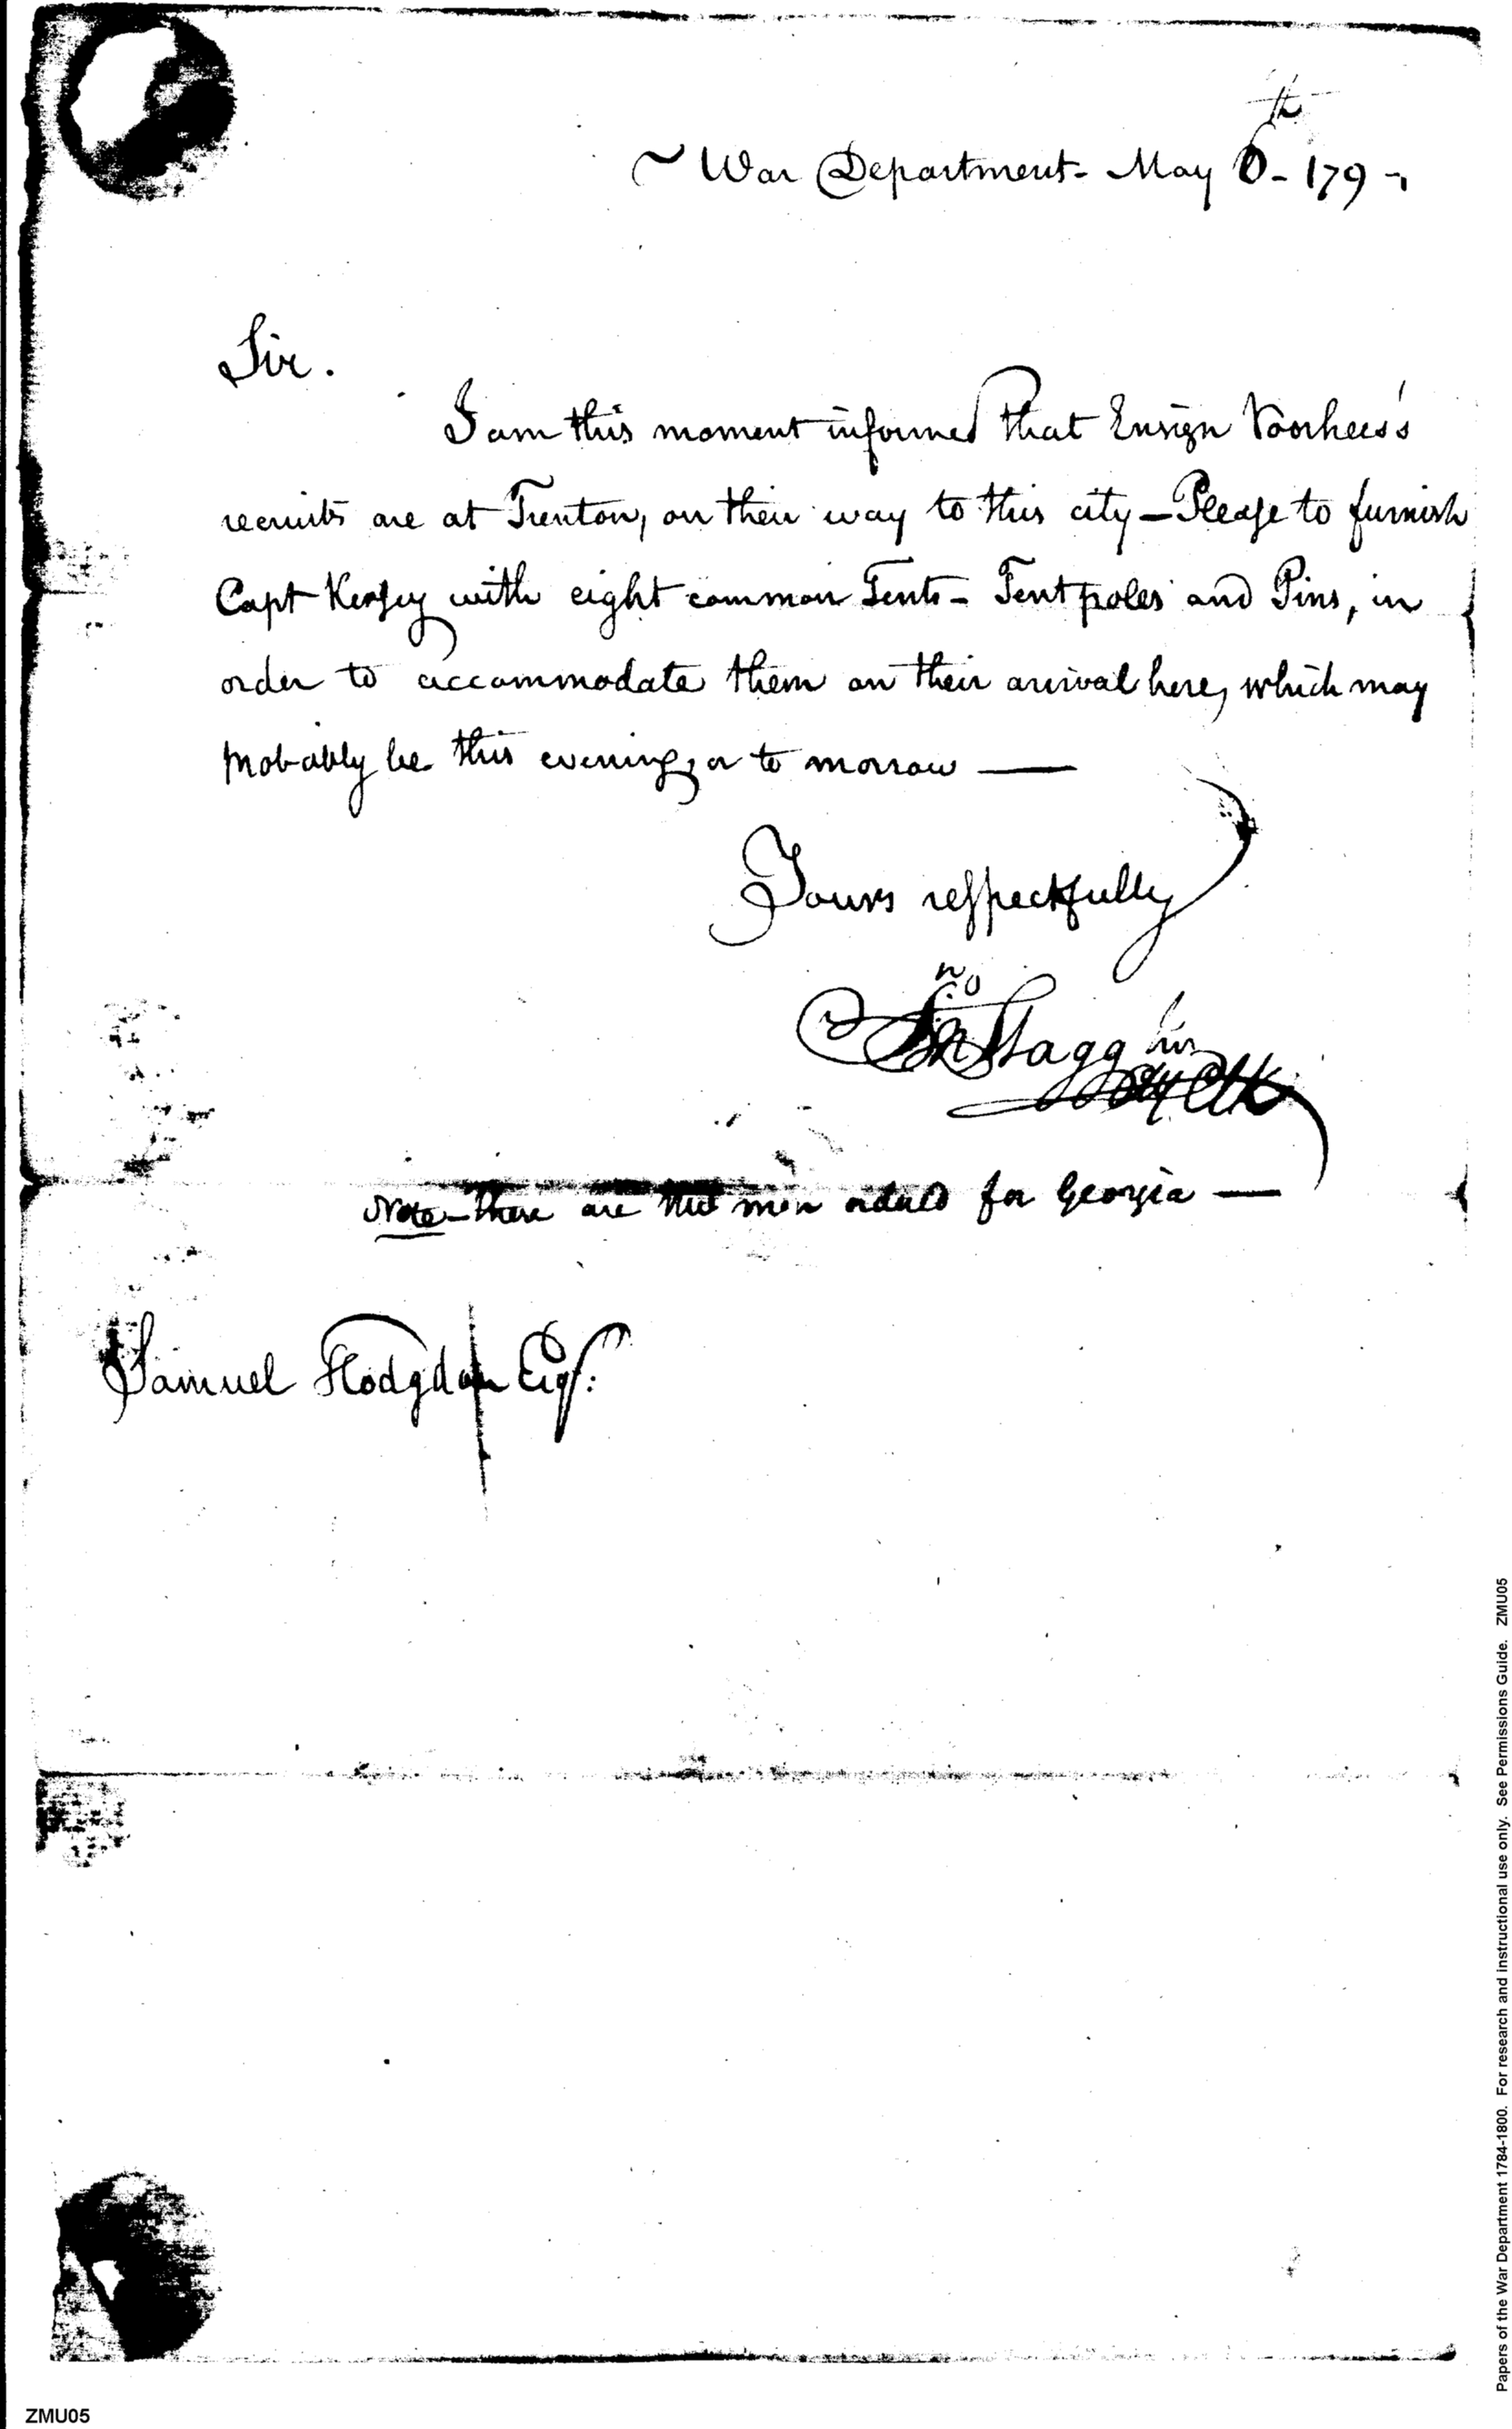 War Department - May 6th - 179
Sir.
I am this moment informed that Ensign Voorhees's
recruits are at Trenton, on their way to this city - Please to furnish
Capt Kersey with eight common Tents - Tent poles and Pins, in
order to accommodate them on their arrival here, which may
probably be this evening, or to morrow —
Yours respectfully
Jno Stagg Jun
Note - these are the men ordered for Georgia —
Samuel Hodgdon Esqr:
Papers of the War Department 1784-1800. For research and instructional use only. See Permissions Guide. ZMU05
ZMU05